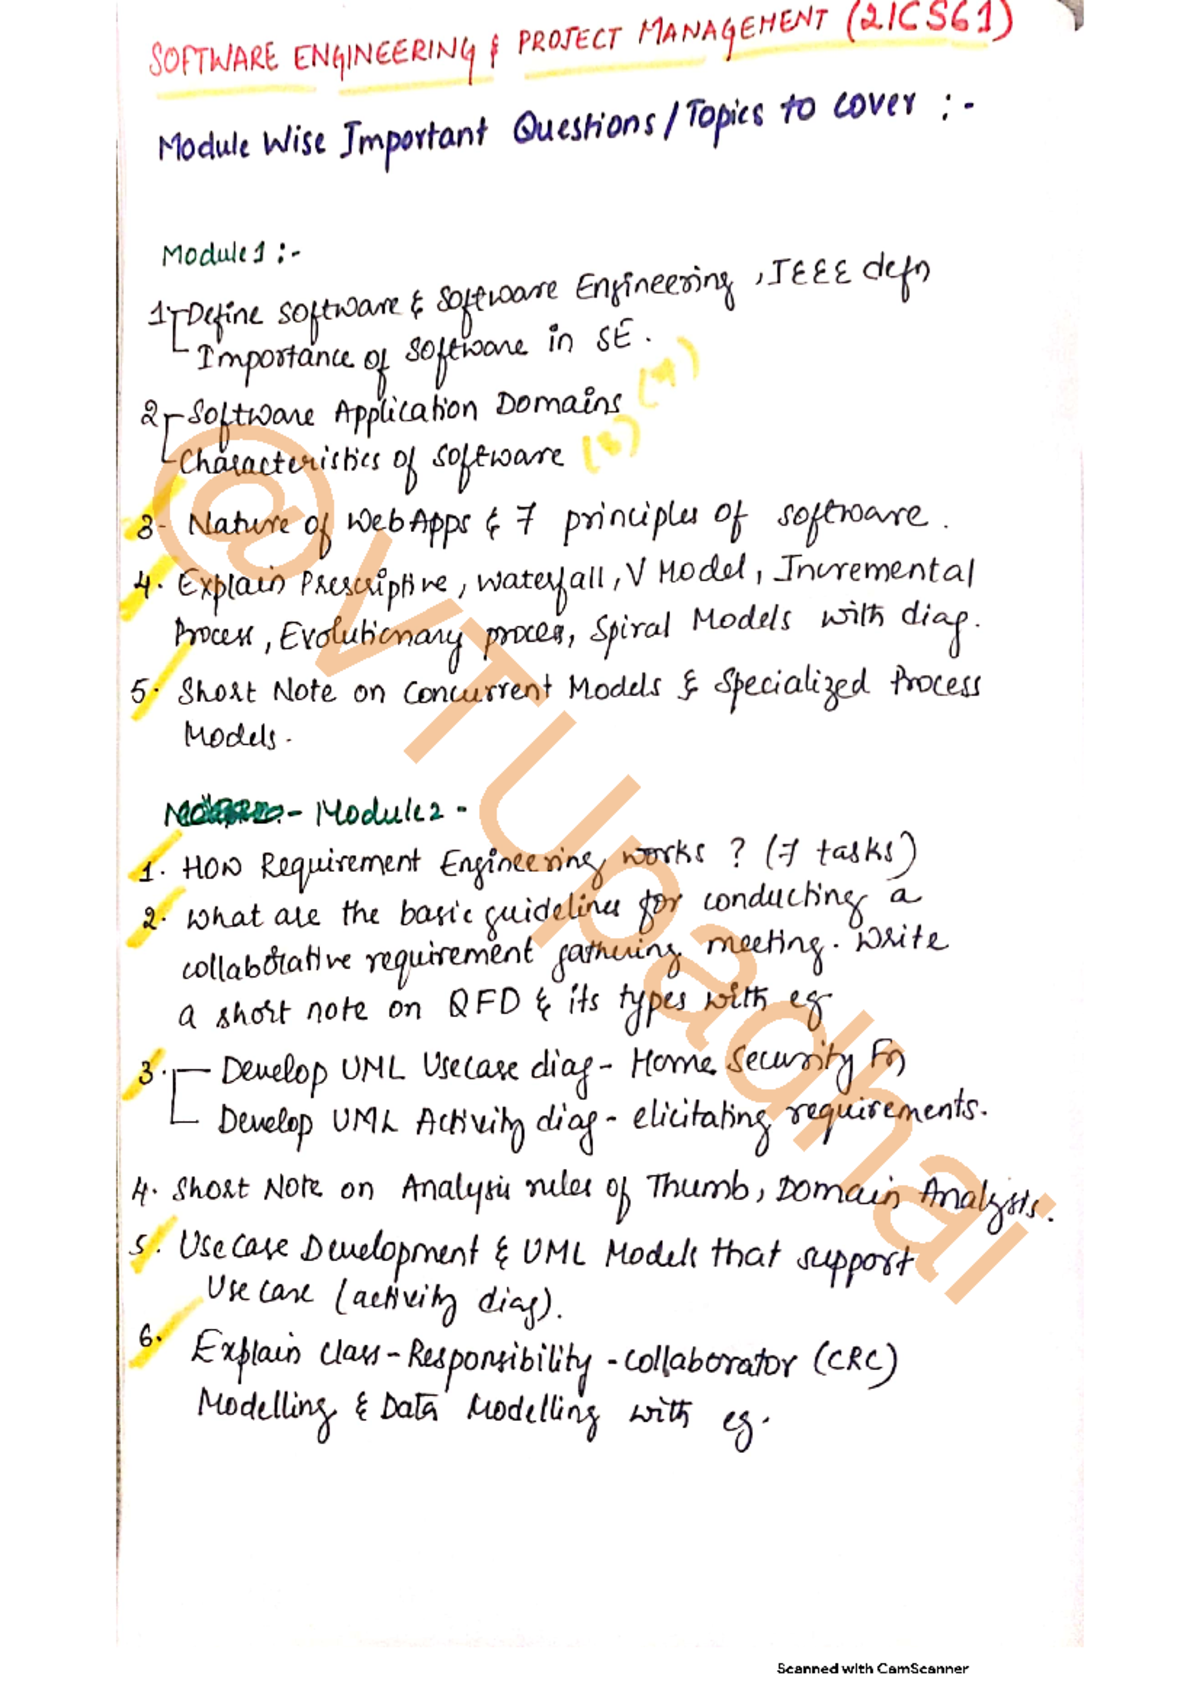 SOFTWARE ENGINEERING & PROJECT MANAGEMENT (21CS61)
Module Wise Important Questions/Topics to cover :-
Module 1 :-
1. Define software & software Engineering, IEEE defn
Importance of software in SE.
2 Software Application Domains
Characteristics of software
3- Nature of WebApps & 7 principles of software.
4. Explain Prescriptive, Waterfall, V Model, Incremental
Process, Evolutionary process, Spiral Models with diag.
5. Short Note on Concurrent Models & Specialized Process
Models.
- Module 2 -
1. How Requirement Engineering works ? (7 tasks)
2. What are the basic guidelines for conducting a
collaborative requirement gathering meeting. Write
a short note on QFD & its types with eg
3. Develop UML Usecase diag - Home Security Fn
Develop UML Activity diag - elicitating requirements.
4. Short Note on Analysis rules of Thumb, Domain Analysis.
5. Use case Development & UML Models that support
Use case (activity diag).
6. Explain class-Responsibility-collaborator (CRC)
Modelling & Data Modelling with eg.
@VTUpadhai
Scanned with CamScanner